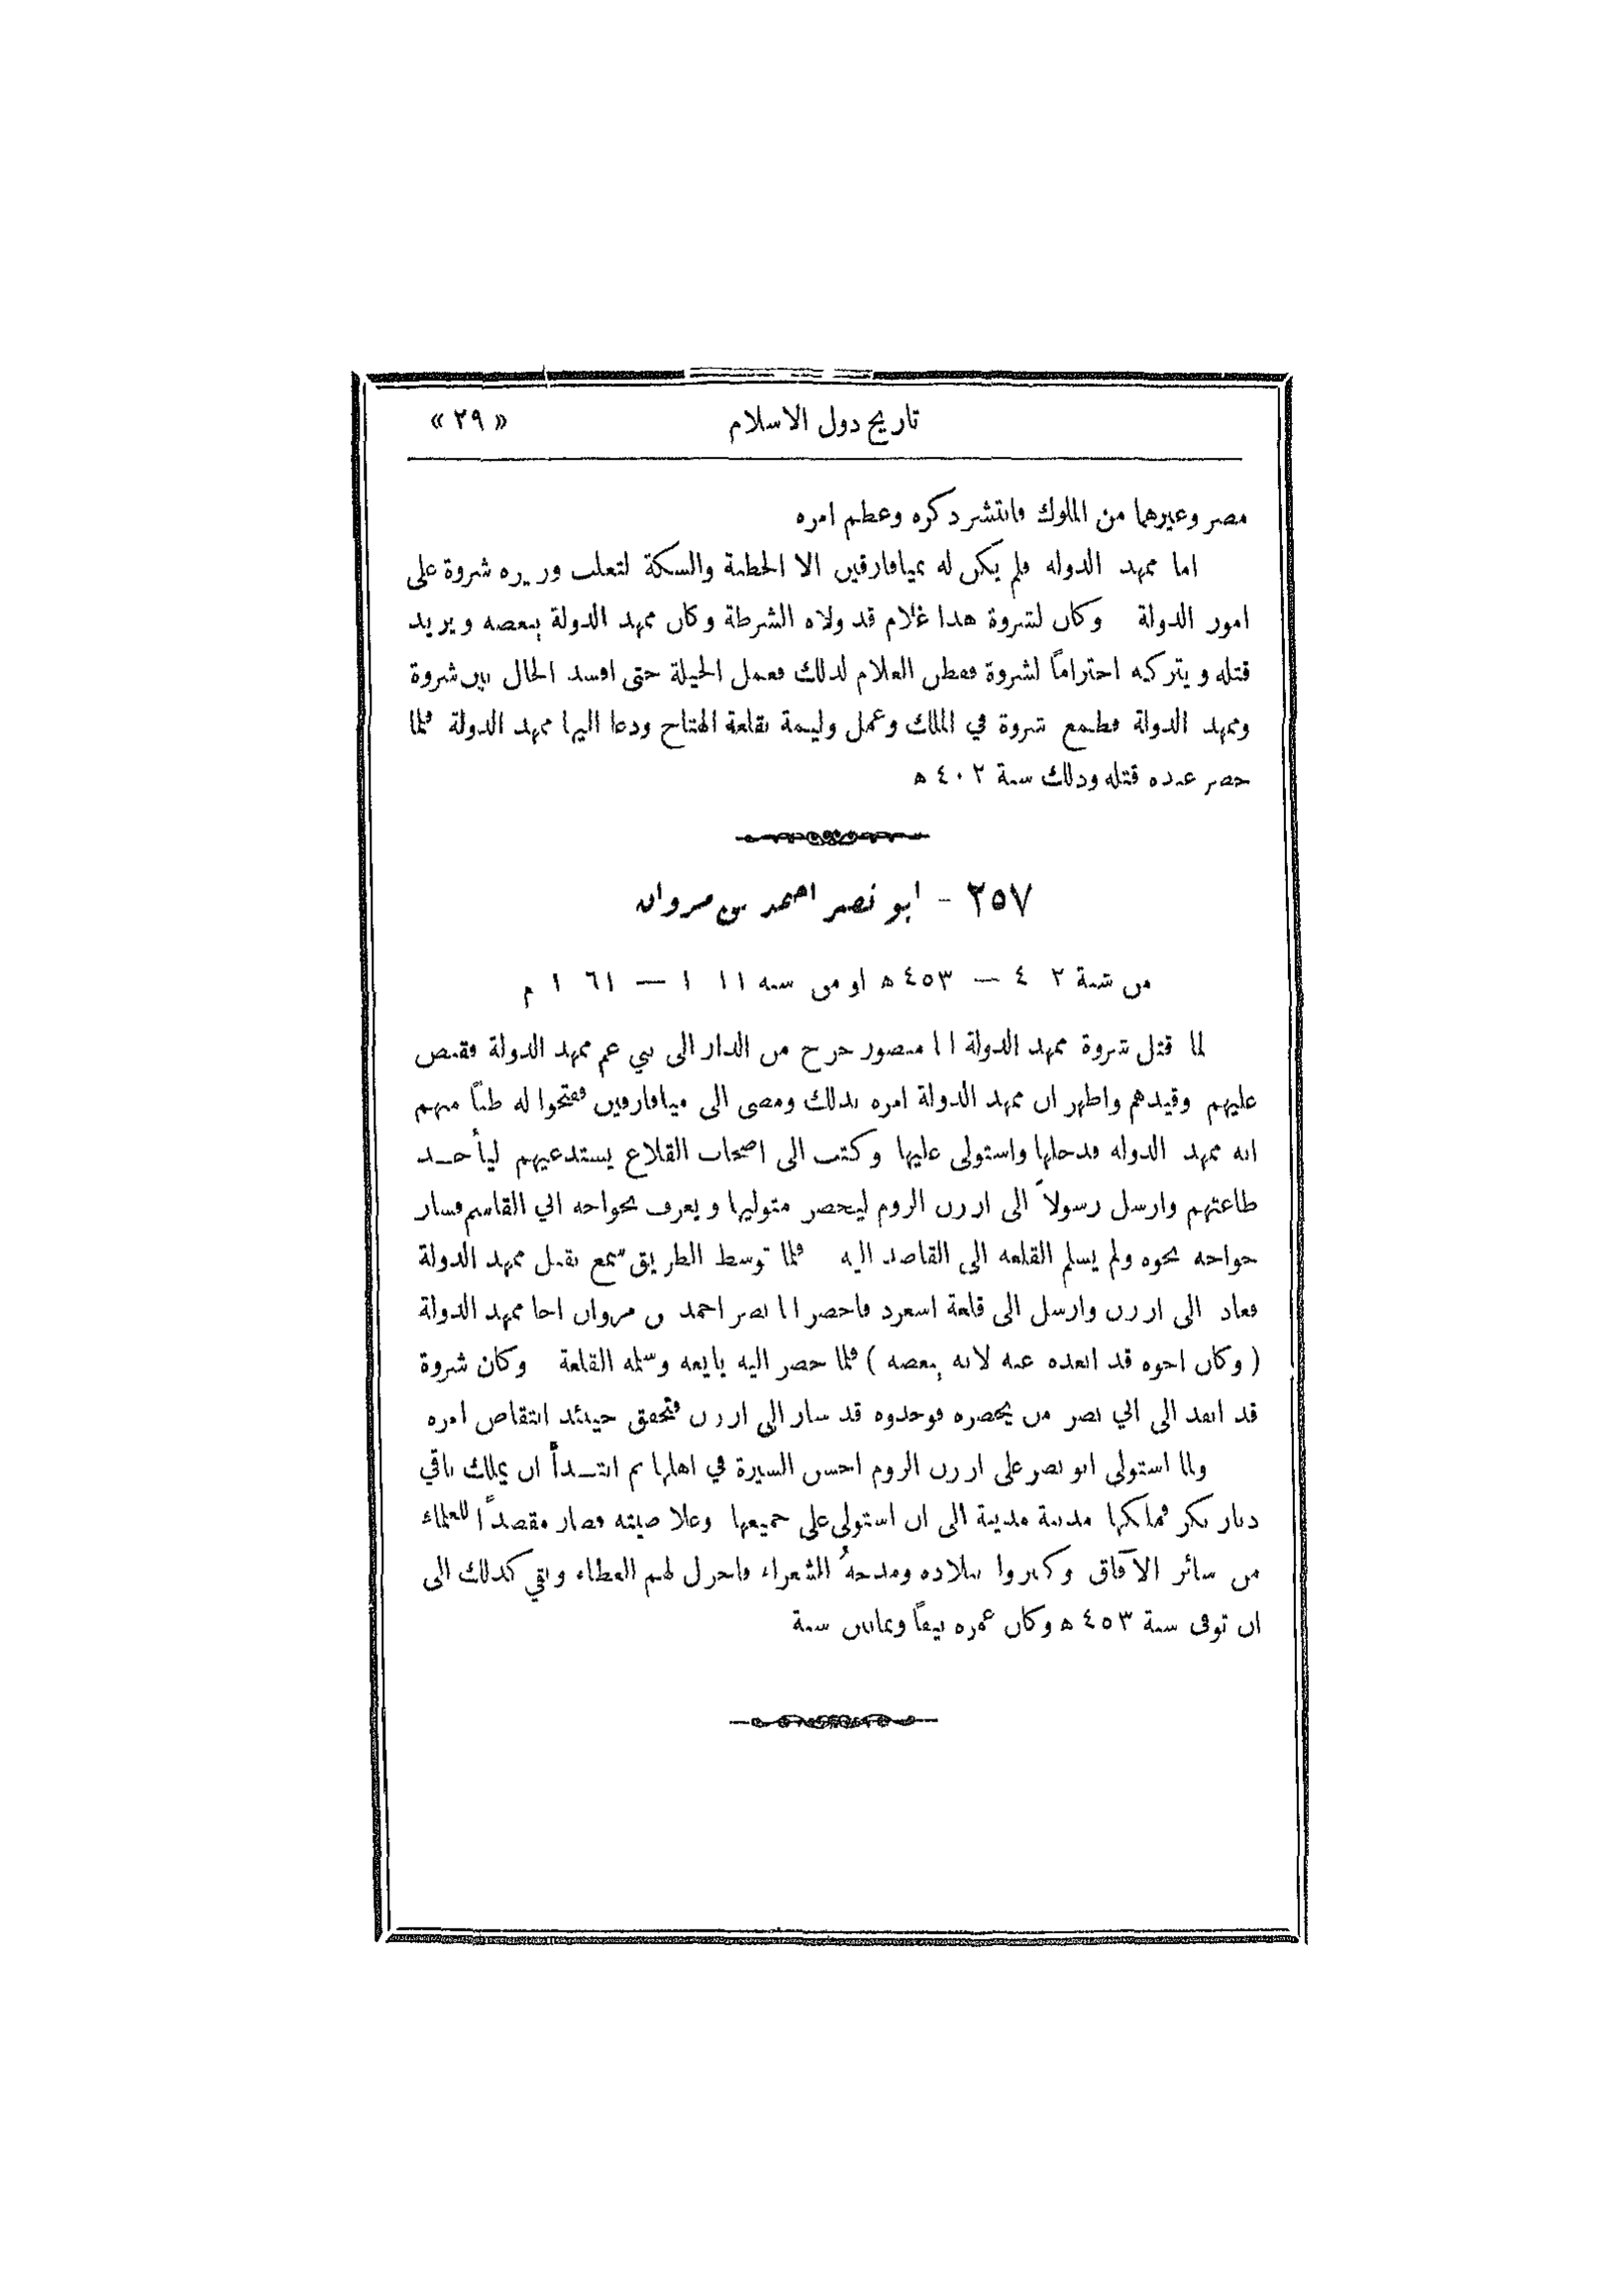 تاريخ دول الاسلام « ٢٩ »
مصر وغيرهما من الملوك فانتشر ذكره وعظم امره
اما ممهد الدوله فلم يكن له بميافارقين الا الخطبة والسكة لتغلب وزيره شروة على
امور الدولة وكان لشروة هذا غلام قد ولاه الشرطة وكان ممهد الدولة يبغضه ويريد
قتله ويتركه احتراماً لشروة ففطن الغلام لذلك فعمل الحيلة حتى افسد الحال بين شروة
وممهد الدولة فطمع شروة في الملك وعمل وليمة بقلعة الهتاخ ودعا اليها ممهد الدولة فلما
حضر عنده قتله وذلك سنة ٤٠٢ ه
٢٥٧ - ابو نصر احمد بن مروان
من سنة ٤٠٢ — ٤٥٣ ه او من سنه ١٠١١ — ١٠٦١ م
لما قتل شروة ممهد الدولة ابا منصور خرج من الدار الى بني عم ممهد الدولة فقبض
عليهم وقيدهم واظهر ان ممهد الدولة امره بذلك ومضى الى ميافارقين ففتحوا له ظناً منهم
انه ممهد الدوله فدخلها واستولى عليها وكتب الى اصحاب القلاع يستدعيهم ليأخـذ
طاعتهم وارسل رسولاً الى ارزن الروم ليحضر متوليها ويعرف بخواجه ابي القاسم فسار
خواجه نحوه ولم يسلم القلعه الى القاصد اليه فلما توسط الطريق سمع بقتل ممهد الدولة
فعاد الى ارزن وارسل الى قلعة اسعرد فاحضر ابا نصر احمد بن مروان اخا ممهد الدولة
( وكان اخوه قد ابعده عنه لانه يبغضه ) فلما حضر اليه بايعه وسلمه القلعة وكان شروة
قد انفذ الى ابي نصر من يحضره فوجدوه قد سار الى ارزن فتحقق حينئذ انتقاض امره
ولما استولى ابو نصر على ارزن الروم احسن السيرة في اهلها ثم ابتـدأ ان يملك باقي
ديار بكر فملكها مدينة مدينة الى ان استولى على جميعها وعلا صيته فصار مقصداً للعلماء
من سائر الآفاق وكثروا ببلاده ومدحهُ الشعراء فاجزل لهم العطاء وبقي كذلك الى
ان توفى سنة ٤٥٣ ه وكان عمره نيفاً وثمانين سنة